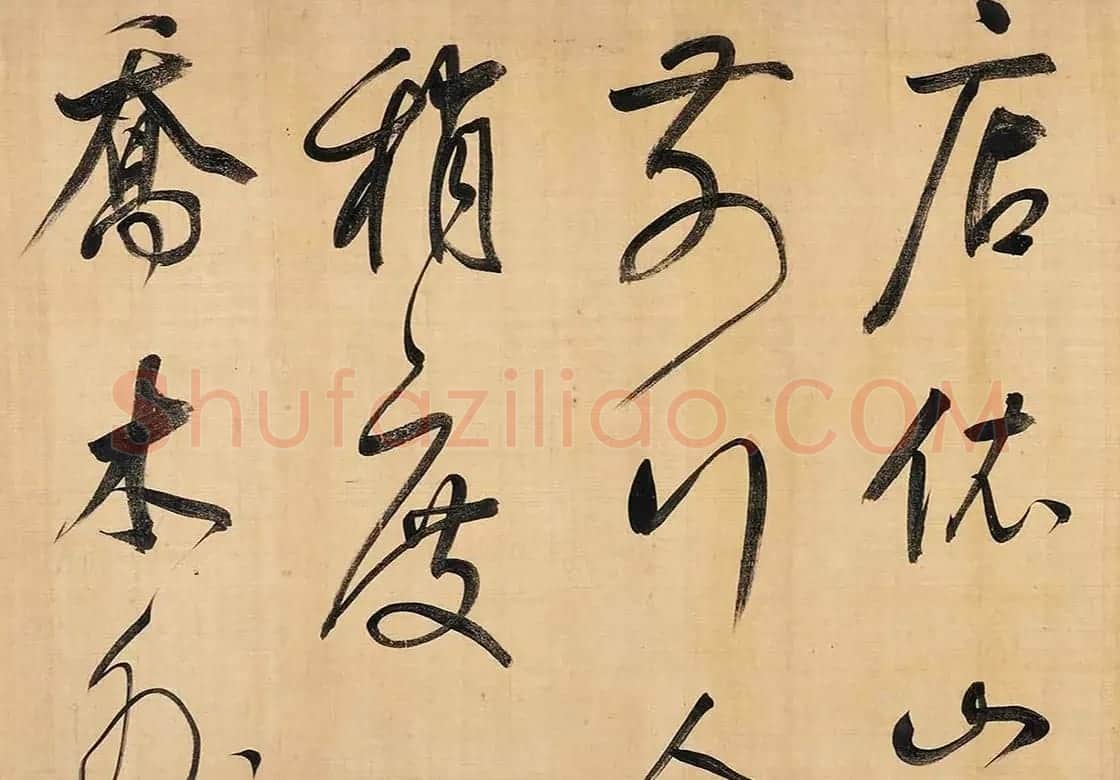 店依山
前川人
稍度
喬木外
Shufaziliao.COM